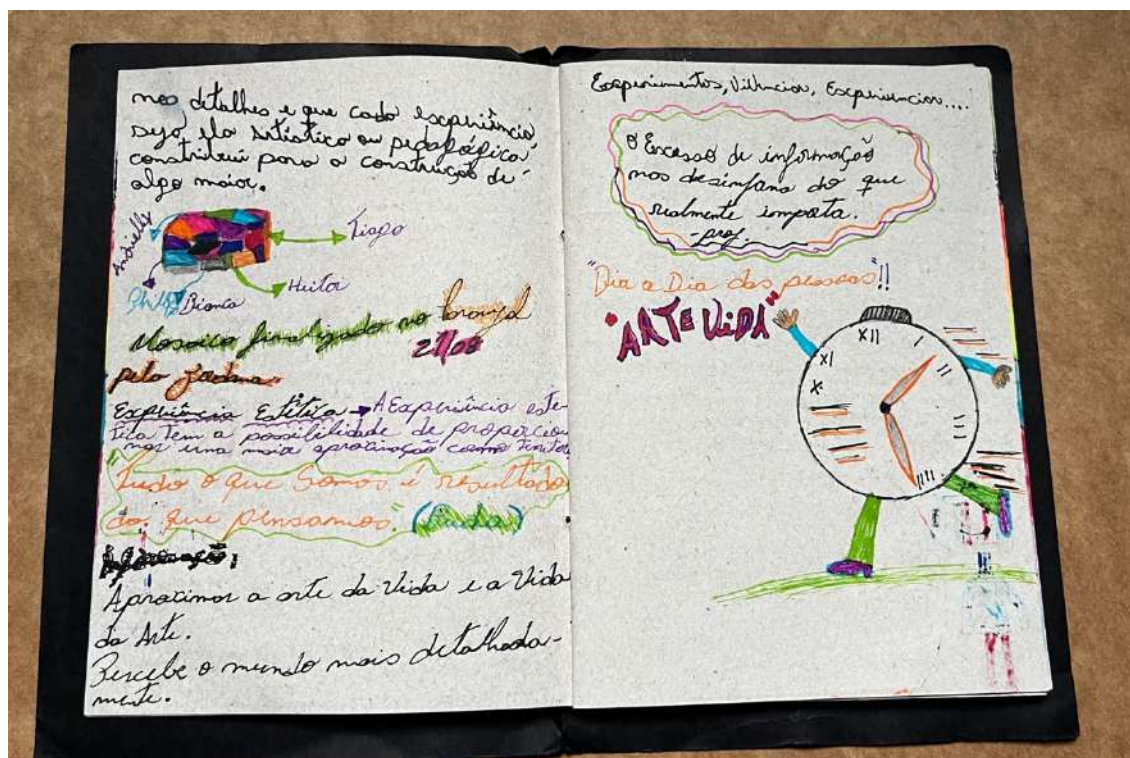 nos detalhes e que cada experiência,
seja ela artístico ou pedagógica,
constribui para a construção de
algo maior.
Tiago
Heitor
Bianca
Mosaico finalizado no
27/08
pelo
Experiência Estética → A Experiência esté-
tica tem a possibilidade de proporcio
nar uma maior aproximação como
"Tudo o que Somos é resultado
do que pensamos." (Buda)
Aproximar a arte da Vida e a Vida
da Arte.
Percebe o mundo mais detalhada-
mente.
Experimentos, Vivências, Experiências....
O Excesso de informação
nos desinforma do que
realmente importa.
-prof.
"Dia a Dia das pessoas"!!
"ARTE ViDA"
XII
I
II
III
IIII
X
XI